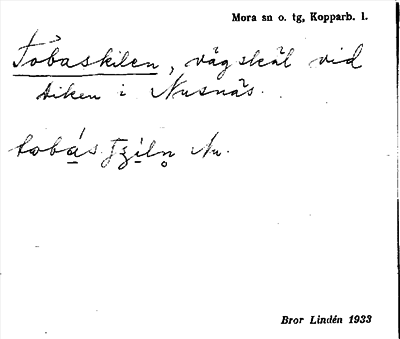 Mora sn o. tg, Kopparb. l.
Tobaskilen, väg skäl vid
diken i Nusnäs.
Nu.
Bror Lindén 1933